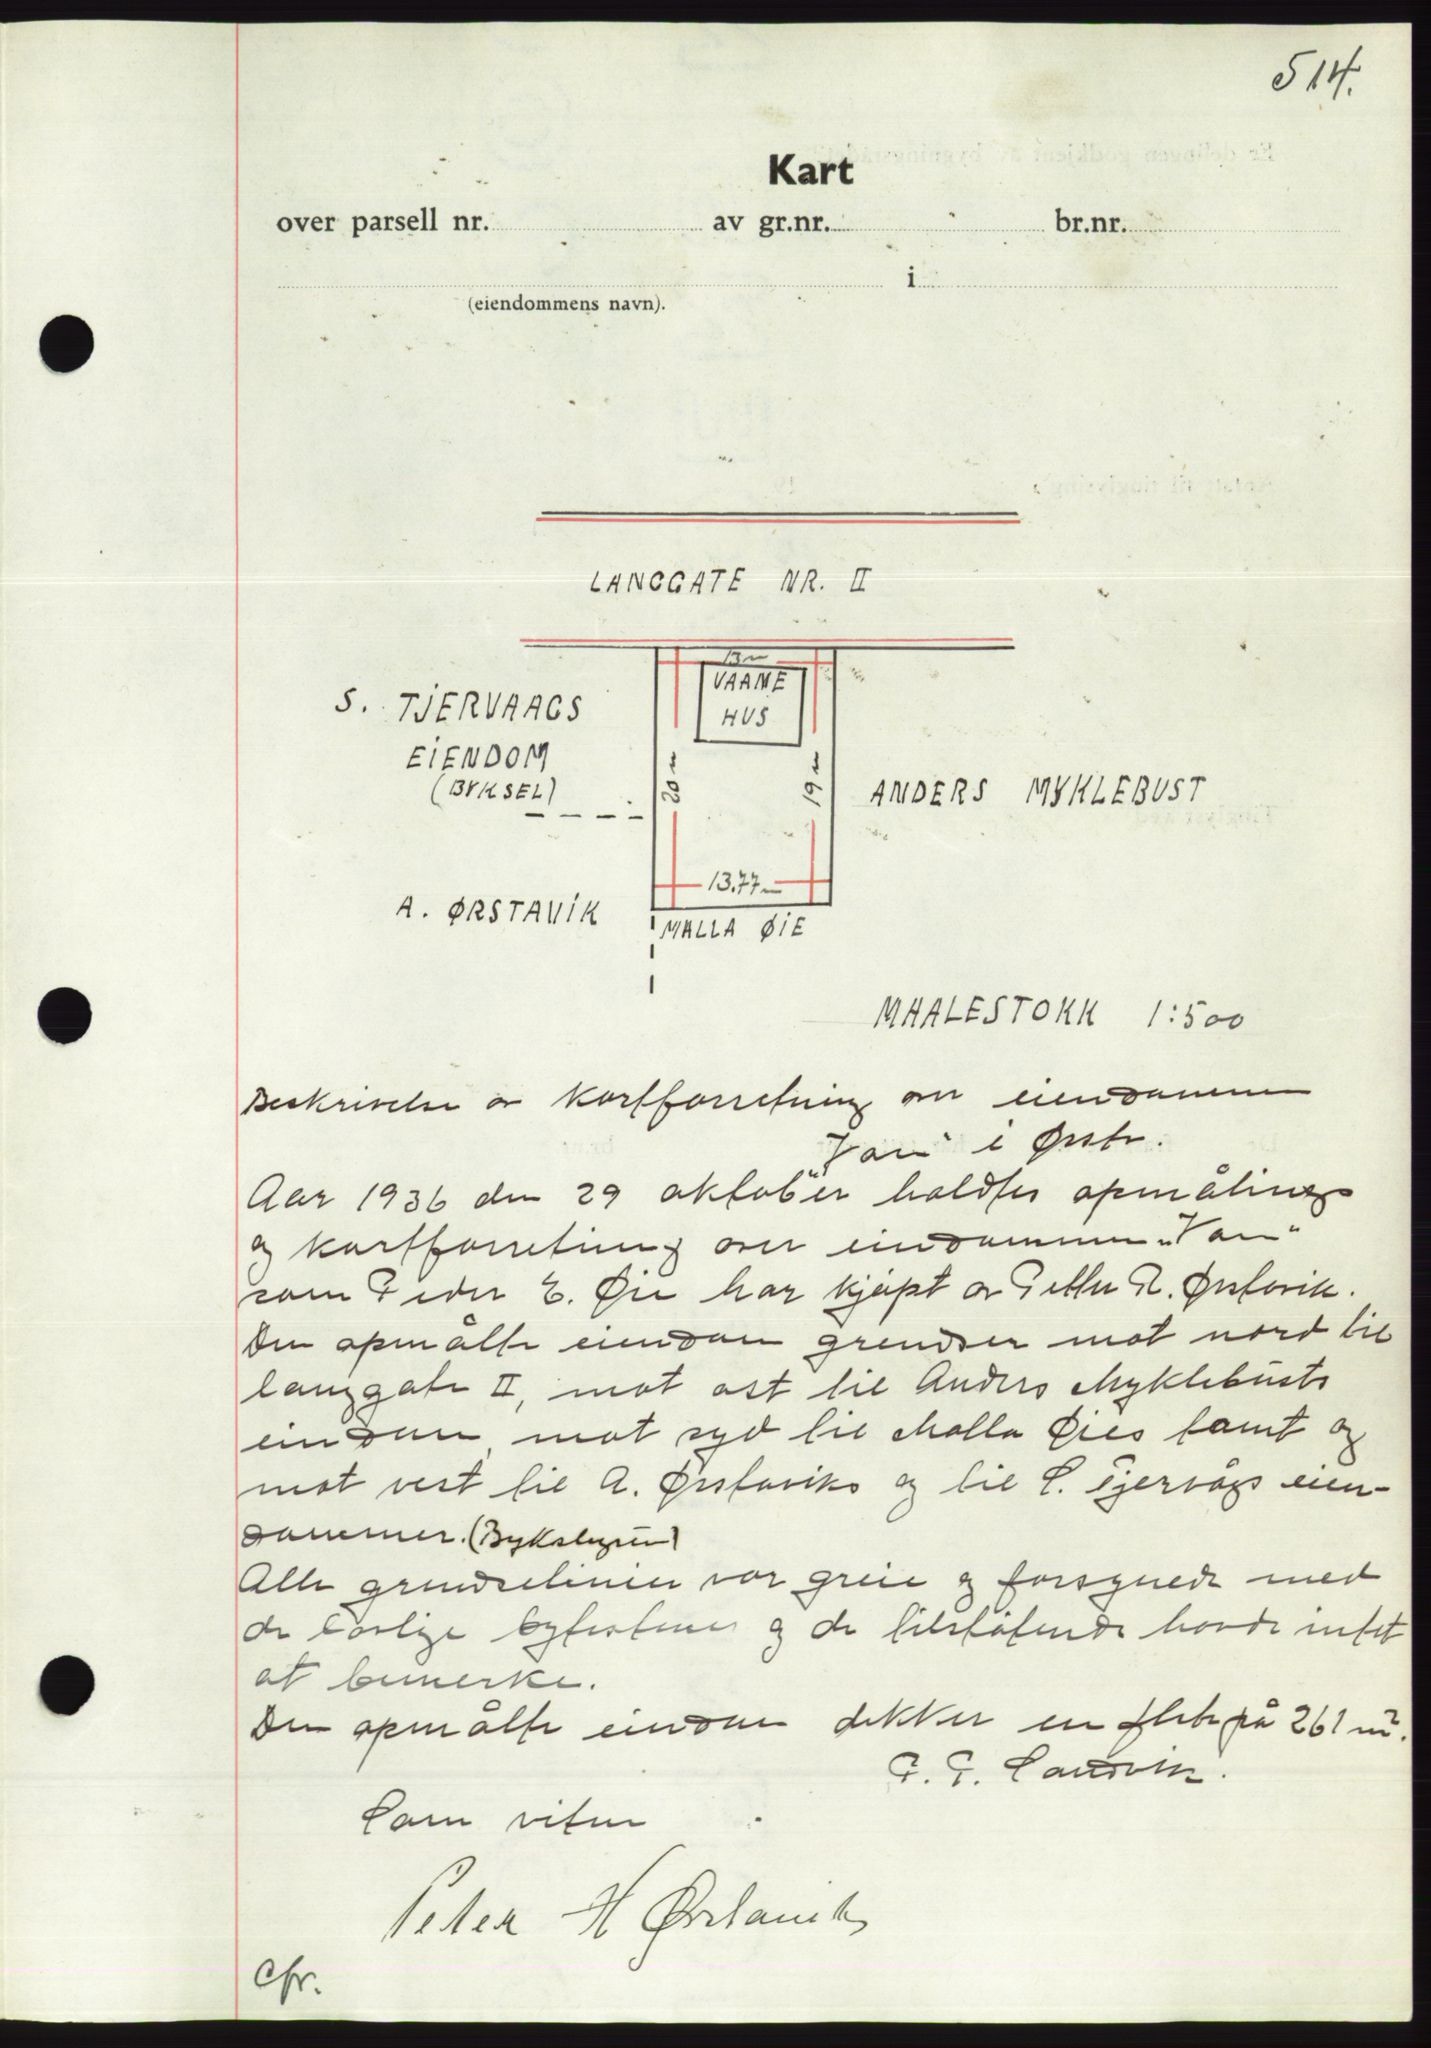 514.
Kart
over parsell nr. av gr.nr. br.nr.
i
(eiendommens navn).
LANGGATE NR. II
13 m
VAANE
HUS
S. TJERVAAGS
EIENDOM
(BYKSEL)
20 m
19 m
ANDERS MYKLEBUST
13.77 m
A. ØRSTAVIK
MALLA ØIE
MAALESTOKK 1:500
Beskrivelse av kartforretning over eiendommen
"Von" i Ørsta.
Aar 1936 den 29 oktober holdtes opmålings
og kartforretning over eiendommen "Von"
som Peder E. Øie har kjøpt av Petter R. Ørstavik.
Den opmålte eiendom grendser mot nord til
langgate II, mot øst til Anders Myklebusts
eiendom, mot syd til Malla Øies tomt og
mot vest til A. Ørstaviks og til S. Tjervågs eien-
dommer. (Bykslingen)
Alle grendselinier var greie og forsynede med
de lovlige bytestener og de tilstøtende havde intet
at bemerke.
Den opmålte eiendom dekker en flate på 261 m².
P. P. Landvik.
Som vitne
Peter H Ørstavik
Cfr.